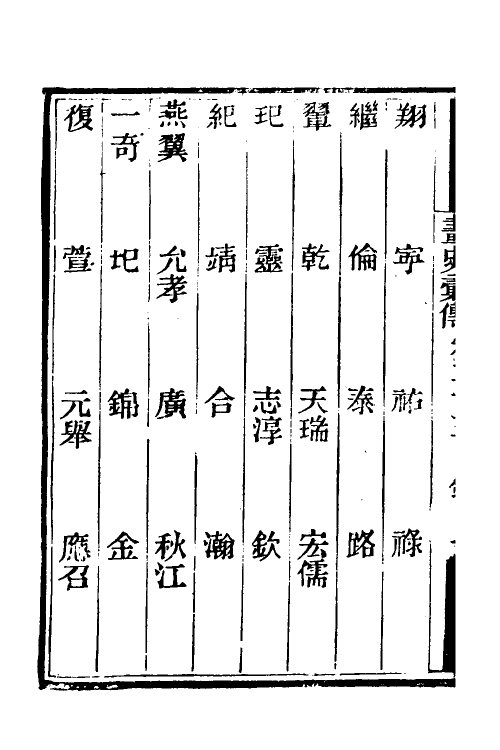 翔　寕　祐　祿
繼　倫　泰　路
翬　乾　天瑞　宏儒
玘　靈　志淳　欽
紀　靖　合　瀚
燕翼　允孝　廣　秋江
一奇　圯　錦　金
復　萱　元舉　應召
畫史彙傳